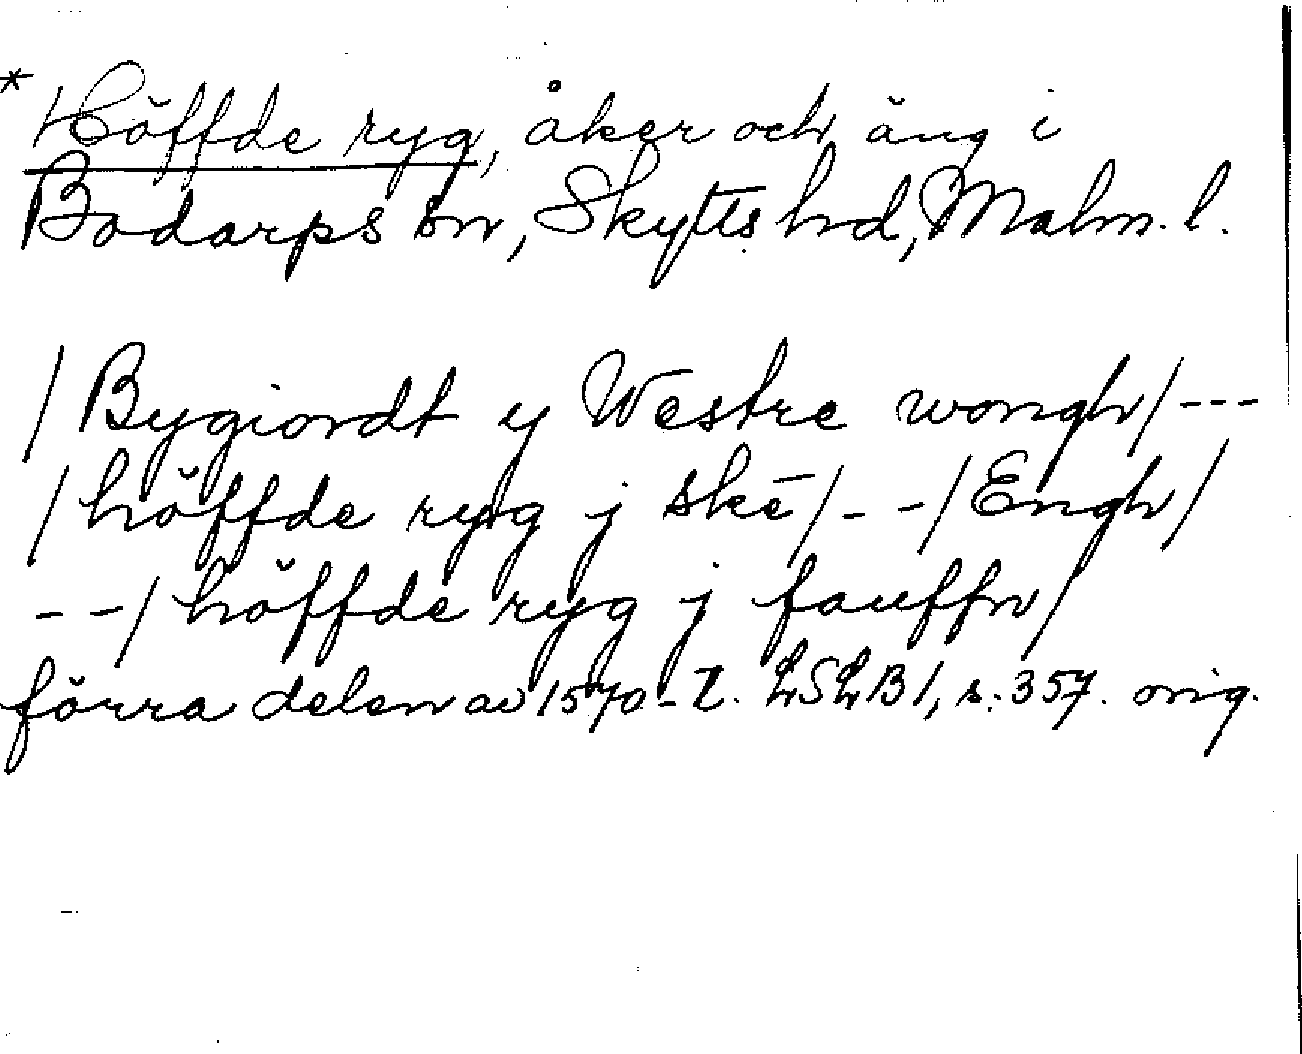 * Höffde ryg, åker och äng i
Bodarps sn, Skytts hd, Malm. l.
/Bygiordt y Westre wongh/---
/höffde ryg j skē/--/Engh/
--/höffde ryg j fauffn/
förra delen av 1570-t. LSLB1, s. 357. orig.